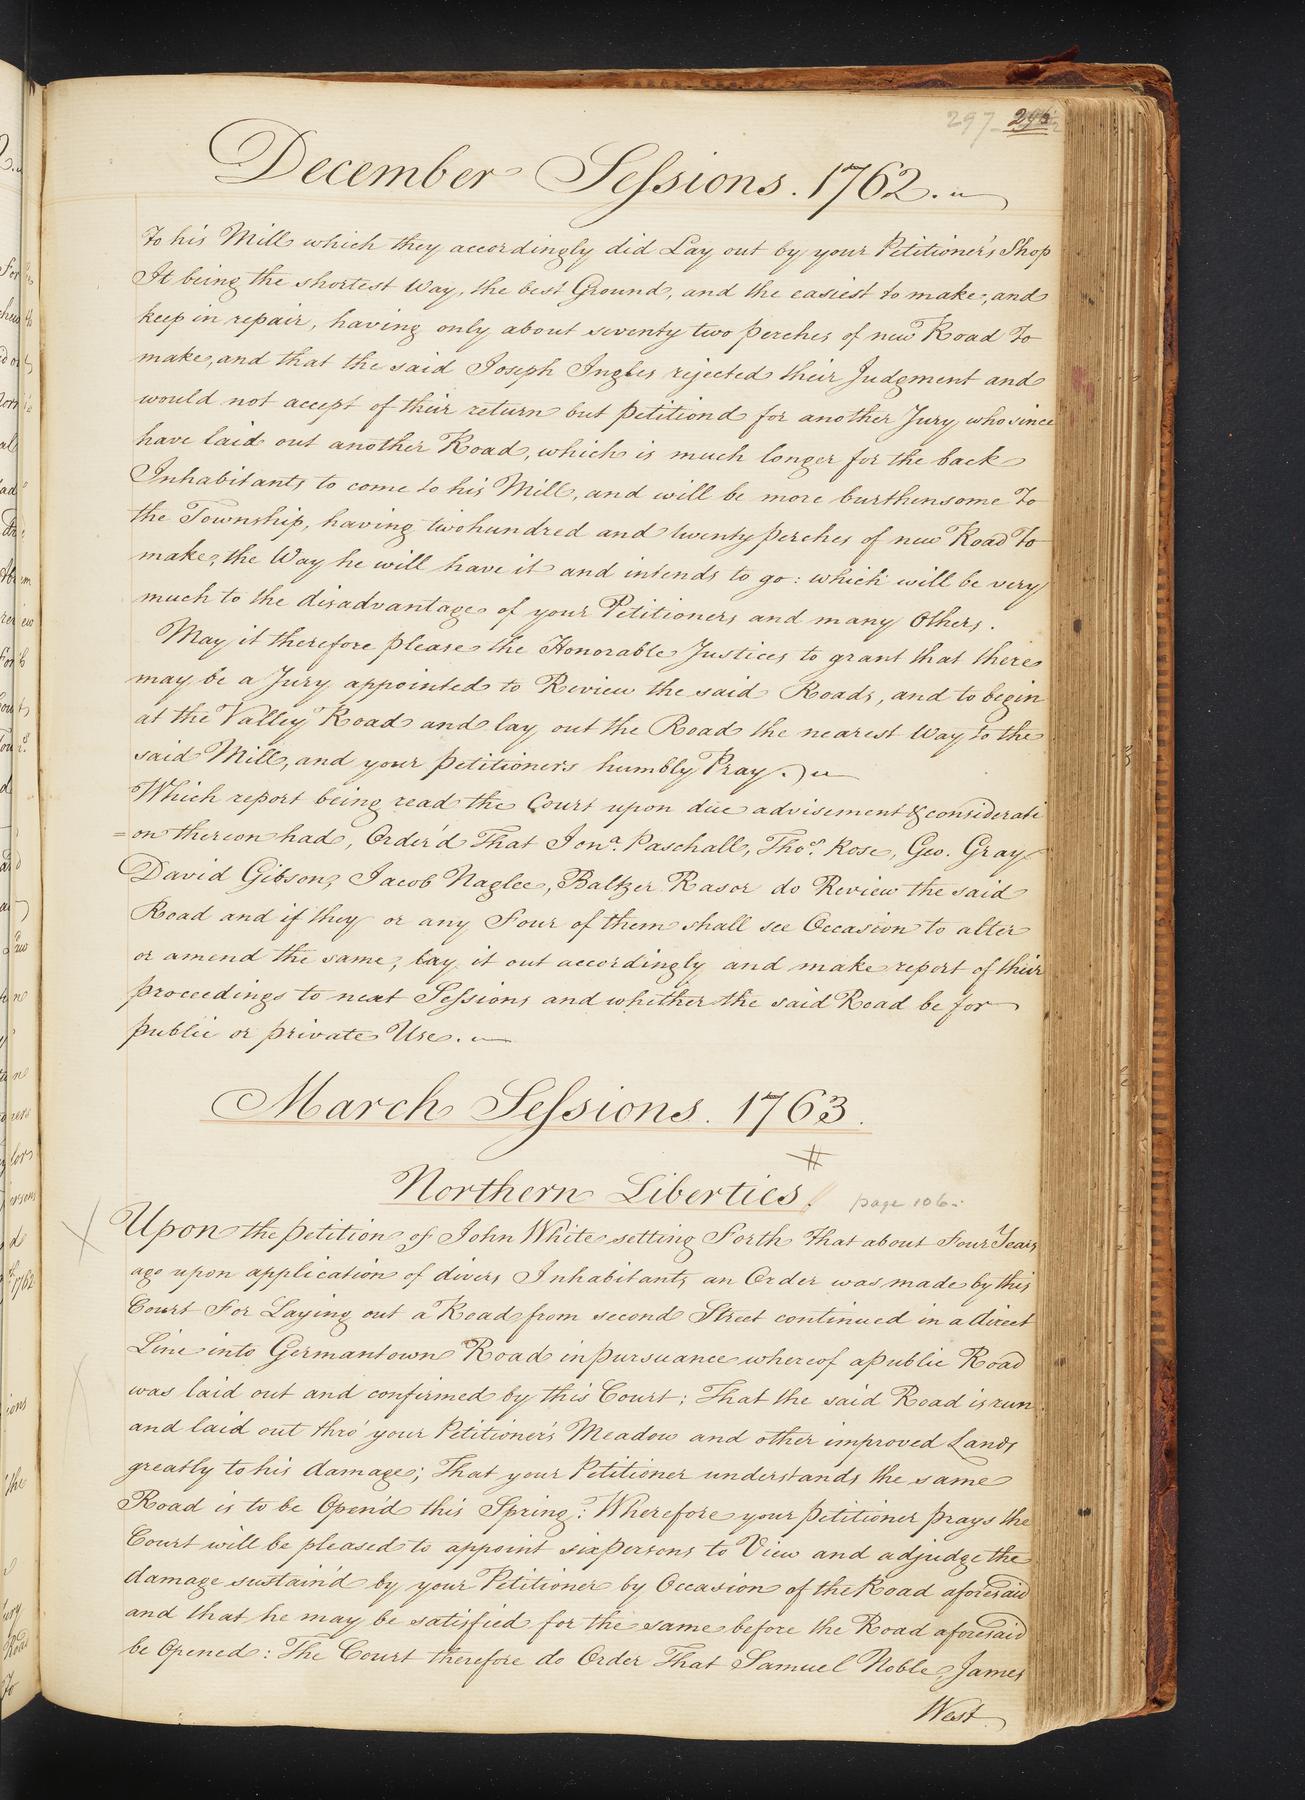 297
December Sessions. 1762.
to his Mill which they accordingly did Lay out by your Petitioner's Shop
It being the shortest Way, the best Ground, and the easiest to make, and
keep in repair, having only about seventy two perches of new Road to
make, and that the said Joseph Ingles rejected their Judgment and
would not accept of their return but petitiond for another Jury who since
have laid out another Road, which is much longer for the back
Inhabitants to come to his Mill, and will be more burthensome to
the Township, having two hundred and twenty perches of new Road to
make, the Way he will have it and intends to go: which will be very
much to the disadvantage of your Petitioners and many Others.
May it therefore please the Honorable Justices to grant that there
may be a Jury appointed to Review the said Roads, and to begin
at the Valley Road and lay out the Road the nearest Way to the
said Mill, and your petitioners humbly Pray.
Which report being read the Court upon due advisement & considerati
=on thereon had, Order'd That Jona. Paschall, Thos. Rose, Geo. Gray
David Gibson, Jacob Naglee, Baltzer Rasor do Review the said
Road and if they or any Four of them shall see Occasion to alter
or amend the same, lay it out accordingly and make report of their
proceedings to next Sessions and whether the said Road be for
public or private Use.
March Sessions. 1763.
#
Northern Liberties. page 106.
Upon the petition of John White setting Forth that about Four Years
ago upon application of divers Inhabitants an Order was made by this
Court For Laying out a Road from second Street continued in a direct
Line into Germantown Road in pursuance whereof a public Road
was laid out and confirmed by this Court; That the said Road is run
and laid out thro' your Petitioner's Meadow and other improved Lands
greatly to his damage; That your Petitioner understands the same
Road is to be Open'd this Spring: Wherefore your petitioner prays the
Court will be pleased to appoint six persons to View and adjudge the
damage sustain'd by your Petitioner by Occasion of the Road aforesaid
and that he may be satisfied for the same before the Road aforesaid
be Opened: The Court therefore do Order That Samuel Noble, James
West